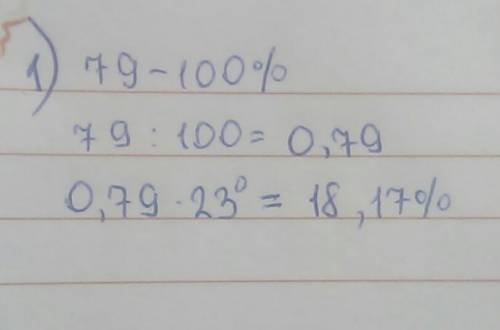 1) 79 - 100%
79 : 100 = 0,79
0,79 · 23⁰ = 18,17%